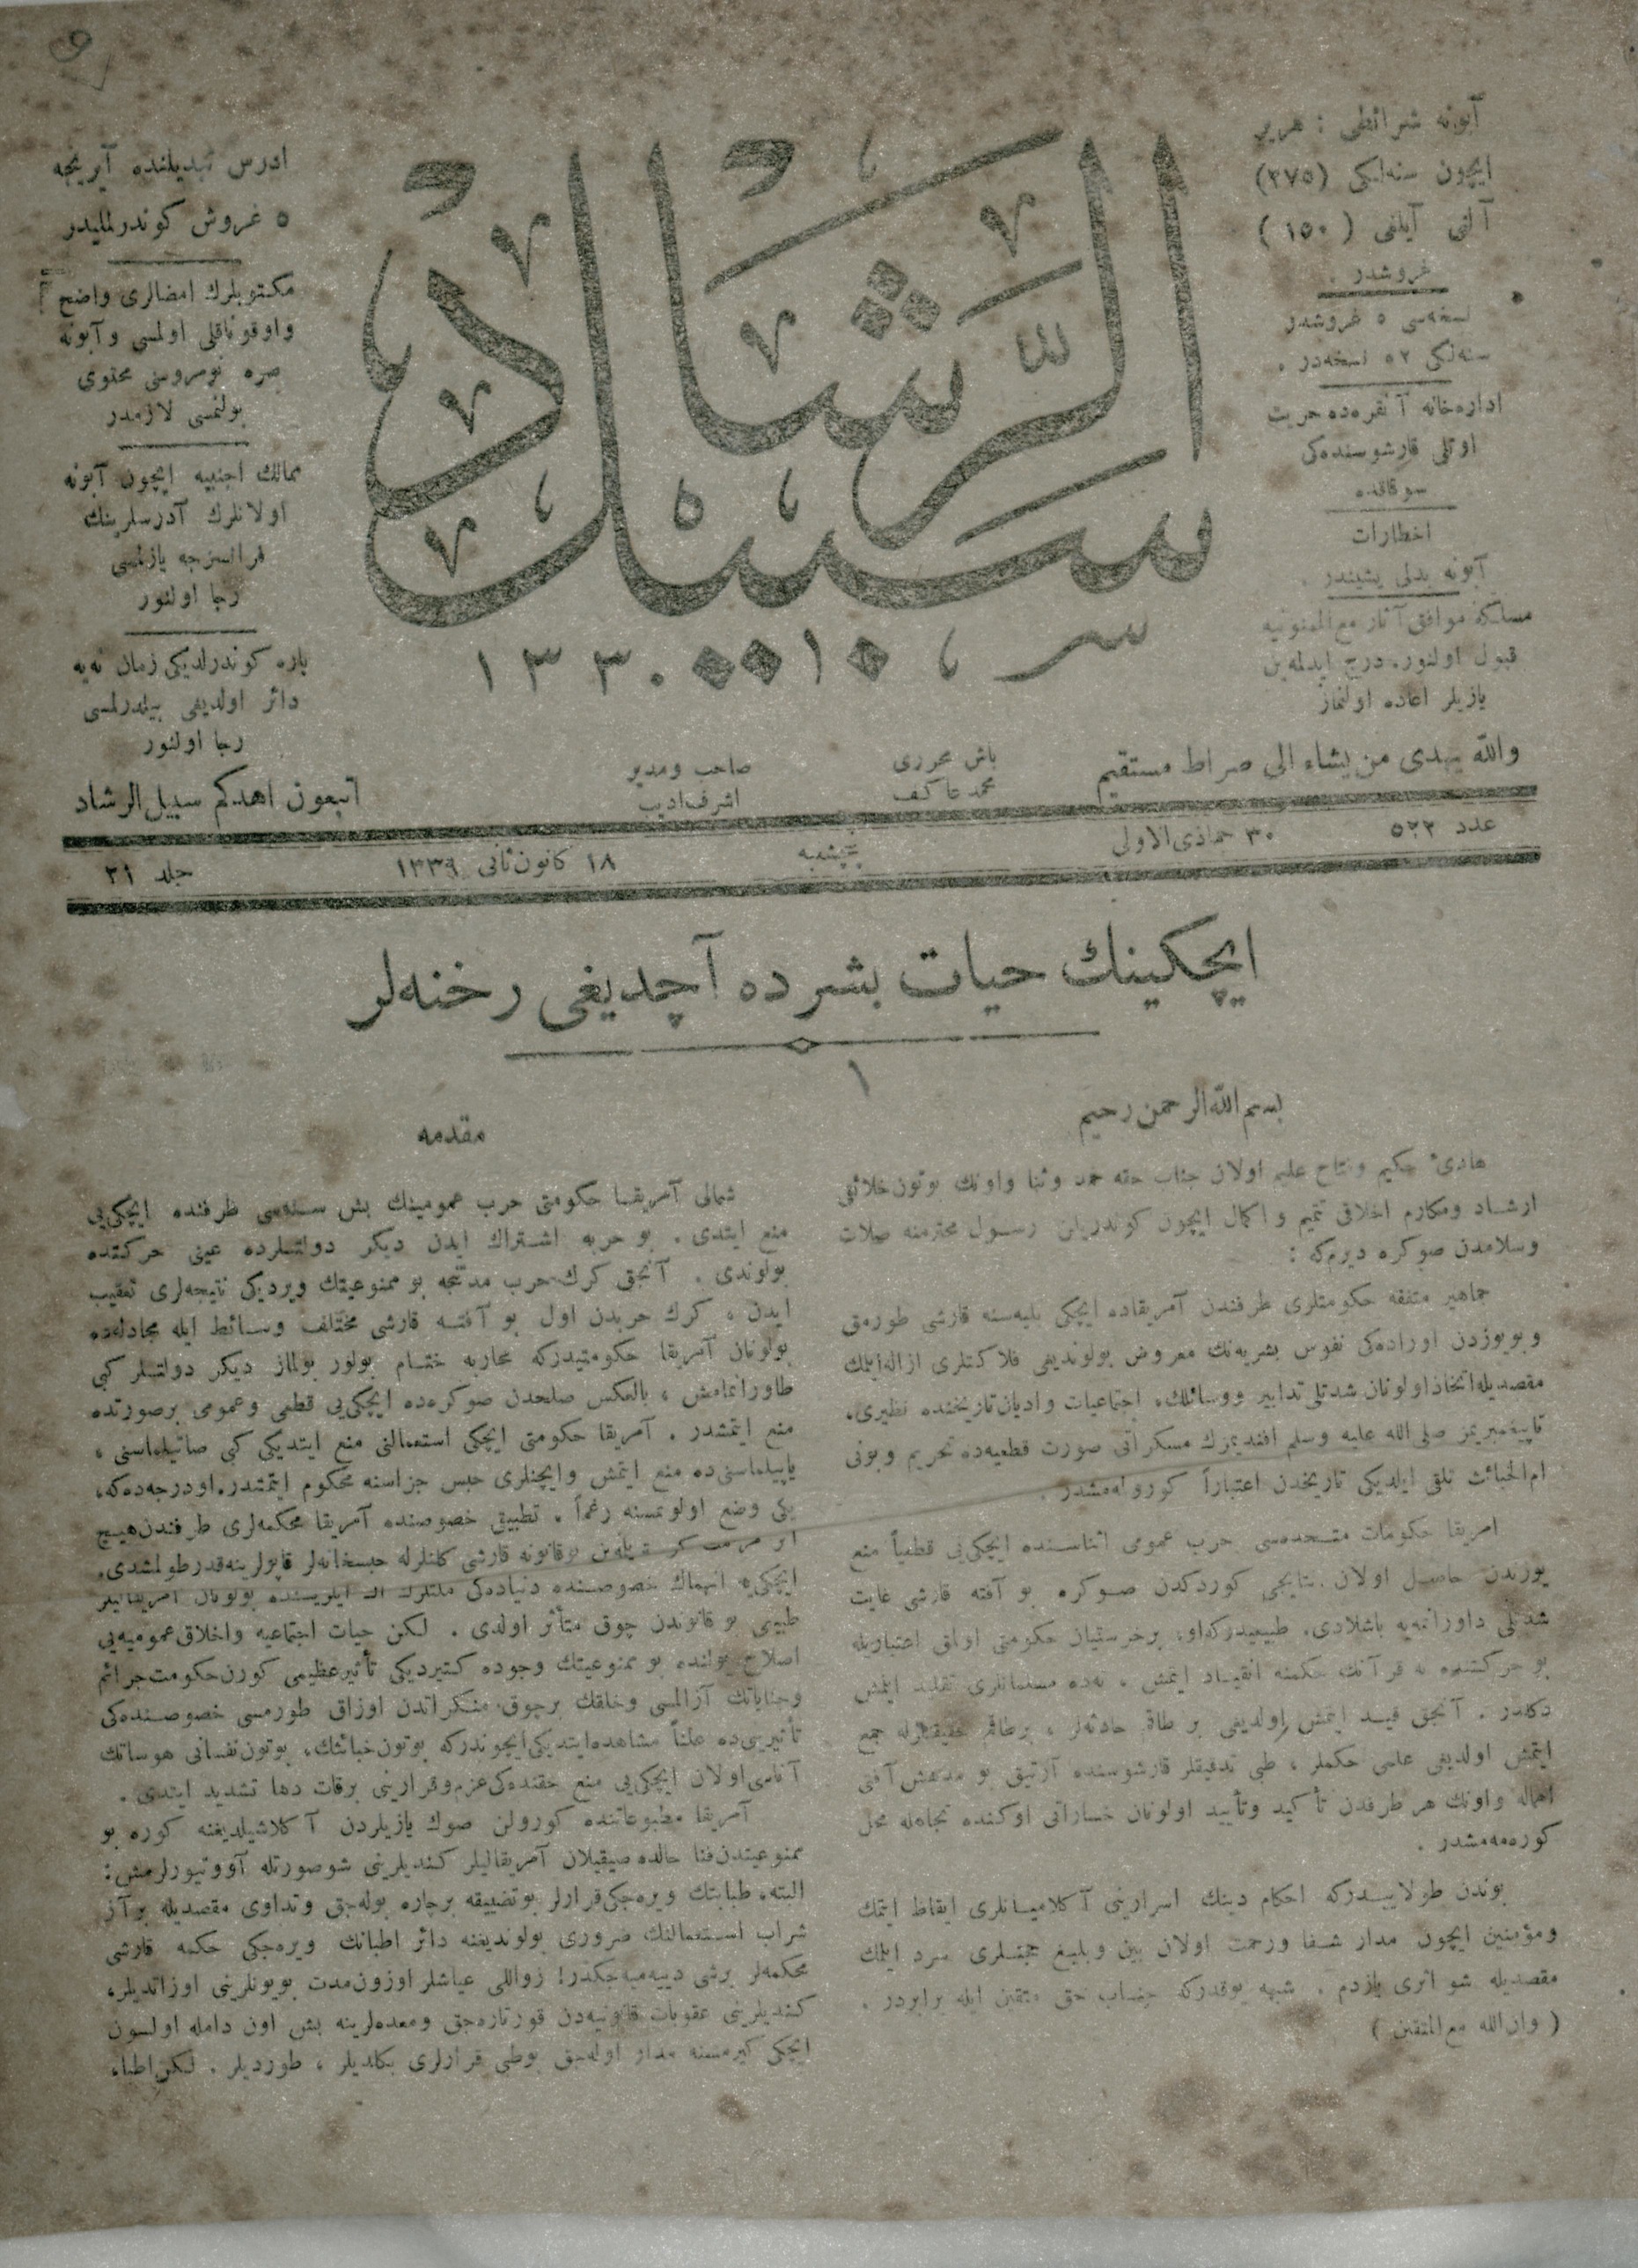 آبونه شرائطی : هر یر
ایچون سنه‌لکی (٣٧٥)
آلتی آیلغی ( ١٥٠ )
غروشدر .
نسخه‌سی ٥ غروشدر
سنه‌لکی ٥٢ نسخه‌در .
اداره‌خانه آنقره‌ده حریت
اوتلی قارشوسنده‌کی
سوقاقده
اخطارات
آبونه بدلی پشیندر .
مسلکه موافق آثار مع الممنونیه
قبول اولنور. درج ایدلمه‌ین
یازیلر اعاده اولنماز
سبیل الرشاد
١٣٣٠
ادرس تبدیلنده آیریجه
٥ غروش کوندرلملیدر
مکتوبلرك امضالری واضح
واوقوناقلی اولمسی وآبونه
صره نومروسنی محتوی
بولنمسی لازمدر
ممالك اجنبیه ایچون آبونه
اولانلرك آدرسلرینك
فرانسزجه یازلمسی
رجا اولنور
پاره کوندرلدیکی زمان نه‌یه
دائر اولدیغی بیلدرلمسی
رجا اولنور
والله یهدی من یشاء الی صراط مستقیم
باش محرری
محمد عاکف
صاحب ومدیر
اشرف ادیب
اتبعون اهدکم سبیل الرشاد
عدد ٥٢٢
٣٠ جماذی الاولی
پنجشنبه
١٨ کانون ثانی ١٣٣٩
جلد ٢١
ایچکینك حیات بشرده آچدیغی رخنه‌لر
١
بسم الله الرحمن رحیم
هادئ حکیم وفتاح علیم اولان جناب حقه حمد وثنا واونك بوتون خلائقی
ارشاد ومکارم اخلاقی تتمیم و اکمال ایچون کوندریلن رسول محترمنه صلات
وسلامدن صوکره دیرم‌که :
جماهیر متفقه حکومتلری طرفندن آمریقاده ایچکی بلیه‌سنه قارشی طورمق
و بو یوزدن اوراده‌کی نفوس بشریه‌نك معروض بولوندیغی فلاکتلری ازاله ایلمك
مقصدیله اتخاذ اولونان شدتلی تدابیر ووسائلك، اجتماعیات وادیان تاریخنده نظیری،
تا پیغمبریمز صلی الله علیه وسلم افندیمزك مسکراتی صورت قطعیه‌ده تحریم و بونی
ام الخبائث تلقی ایلدیکی تاریخدن اعتباراً کورولمه‌مشدر .
امریقا حکومات متحده‌سی حرب عمومی اثناسنده ایچکی‌یی قطعیاً منع
یوزندن حاصل اولان نتایجی کوردکدن صوکره بو آفته قارشی غایت
شدتلی داورانمه‌یه باشلادی. طبیعیدرکه او، بر خرستیان حکومتی اولمق اعتباریله
بو حرکتنده نه قرآنك حکمنه انقیاد ایتمش ، نه‌ده مسلمانلری تقلید ایتمش
دکلدر . آنجق قید ایتمش اولدیغی بر طاقم حادثه‌لر ، بر طاقم حقیقتلرله جمع
ایتمش اولدیغی علمی حکملر ، طبی تدقیقلر قارشوسنده آرتیق بو مدهش آفتی
اهماله واونك هر طرفدن تأکید وتأیید اولونان خساراتی اوکنده تجاهله محل
کورمه‌مشدر .
بوندن طولاییدرکه احکام دینك اسرارینی آکلامیانلری ایقاظ ایتمك
ومؤمنین ایچون مدار شفا ورحمت اولان بین وبلیغ حجتلری سرد ایلمك
مقصدیله شو اثری یازدم . شبهه یوقدرکه جناب حق متقین ایله برابردر .
( وان الله مع المتقین )
مقدمه
شمالی آمریقا حکومتی حرب عمومینك بش سنه‌سی ظرفنده ایچکی‌یی
منع ایتدی . بو حربه اشتراك ایدن دیکر دولتلرده عینی حرکتده
بولوندی . آنجق کرك حرب مدتنجه بو ممنوعیتك ویردیکی نتیجه‌لری تعقیب
ایدن ، کرك حربدن اول بو آفته قارشی مختلف وسائط ایله مجادله‌ده
بولونان آمریقا حکومتیدرکه محاربه ختام بولور بولماز دیکر دولتلر کبی
طاورانمامش ، بالعکس صلحدن صوکره‌ده ایچکی‌یی قطعی وعمومی بر صورتده
منع ایتمشدر . آمریقا حکومتی ایچکی استعمالنی منع ایتدیکی کبی صاتیلماسنی ،
یاپیلماسنی‌ده منع ایتمش وایچنلری حبس جزاسنه محکوم ایتمشدر. او درجه‌ده‌که،
یکی وضع اولونمسنه رغماً ، تطبیقی خصوصنده آمریقا محکمه‌لری طرفندن هیچ
بر مرحمت کوستریله‌ین بو قانونه قارشی کلنلرله حبسخانه‌لر قاپولرینه قدر طولمشدی.
ایچکی‌یه انهماك خصوصنده دنیاده‌کی ملتلرك اك ایلریسنده بولونان آمریقالیلر
طبیعی بو قانوندن چوق متأثر اولدی . لکن حیات اجتماعیه واخلاق عمومیه‌یی
اصلاح یولنده بو ممنوعیتك وجوده کتیردیکی تأثیر عظیمی کورن حکومت جرائم
وجنایاتك آزالمسی وخلقك بر چوق منکراتدن اوزاق طورمسی خصوصنده‌کی
تأثیرینی‌ده علناً مشاهده ایتدیکی ایچوندرکه بوتون خبائثك، بوتون نفسانی هوساتك
آناسی اولان ایچکی‌یی منع حقنده‌کی عزم وقرارینی بر قات دها تشدید ایتدی .
آمریقا مطبوعاتنده کورولن صوك یازیلردن آکلاشیلدیغنه کوره بو
ممنوعیتدن فنا حالده صیقیلان آمریقالیلر کندیلرینی شو صورتله آووتیورلرمش:
البته، طبابتك ویره‌جکی قرارلر بو تضییقه بر چاره بوله‌جق وتداوی مقصدیله بر آز
شراب استعمالنك ضروری بولوندیغنه دائر اطبانك ویره‌جکی حکمه قارشی
محکمه‌لر برشی دییه‌میه‌جکدر! زواللی عیاشلر اوزون مدت بویونلرینی اوزاتدیلر،
کندیلرینی عقوبات قانونیه‌دن قورتاره‌جق ومعده‌لرینه بش اون دامله اولسون
ایچکی کیرمسنه مدار اوله‌جق بو طبی قرارلری بکلدیلر ، طوردیلر . لکن اطبا،